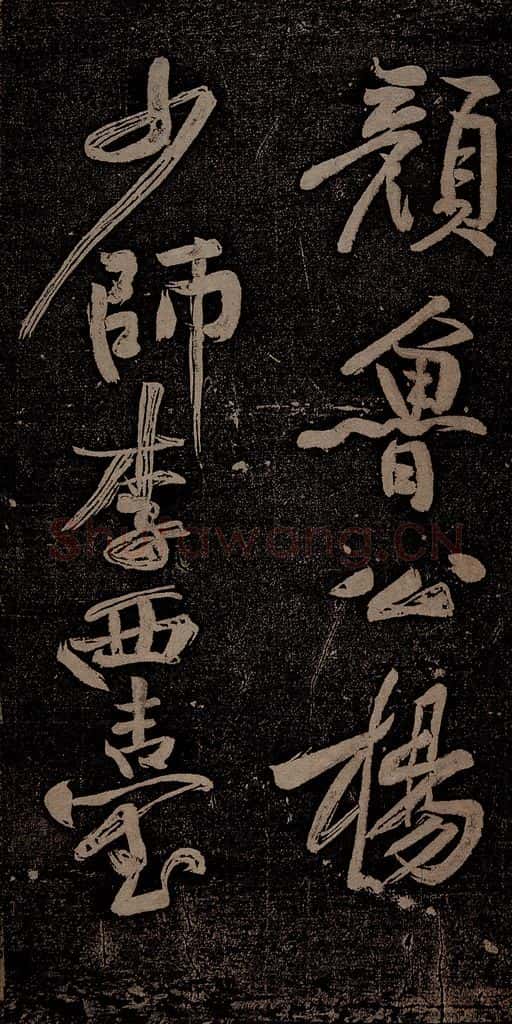 顔魯公楊
少師李西臺
ShuFawang.CN